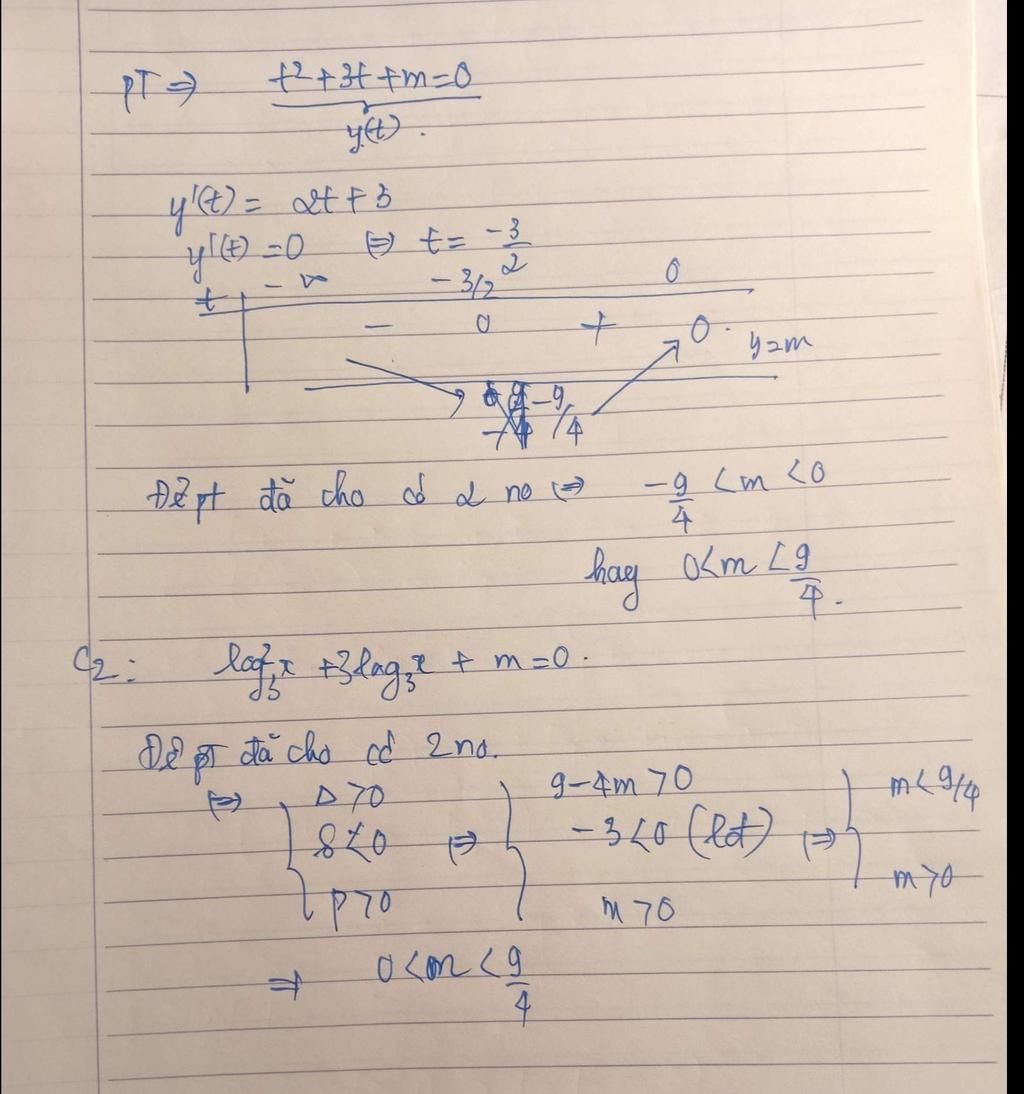 PT ⇒ t² + 3t + m = 0
y(t).
y'(t) = 2t + 3
y'(t) = 0 ⇔ t = -3/2
t -∞ -3/2 0
- 0 + 0 y=m
-9/4
Để pt đã cho có 2 no ⇔ -9/4 < m < 0
hay 0 < m < 9/4.
C2: log²₃x + 3log₃x + m = 0.
Để pT đã cho có 2 no.
⇔ { Δ > 0 ⇔ { 9 - 4m > 0 ⇔ } m < 9/4
S < 0 -3 < 0 (lđ)
P > 0 m > 0 m > 0
⇒ 0 < m < 9/4